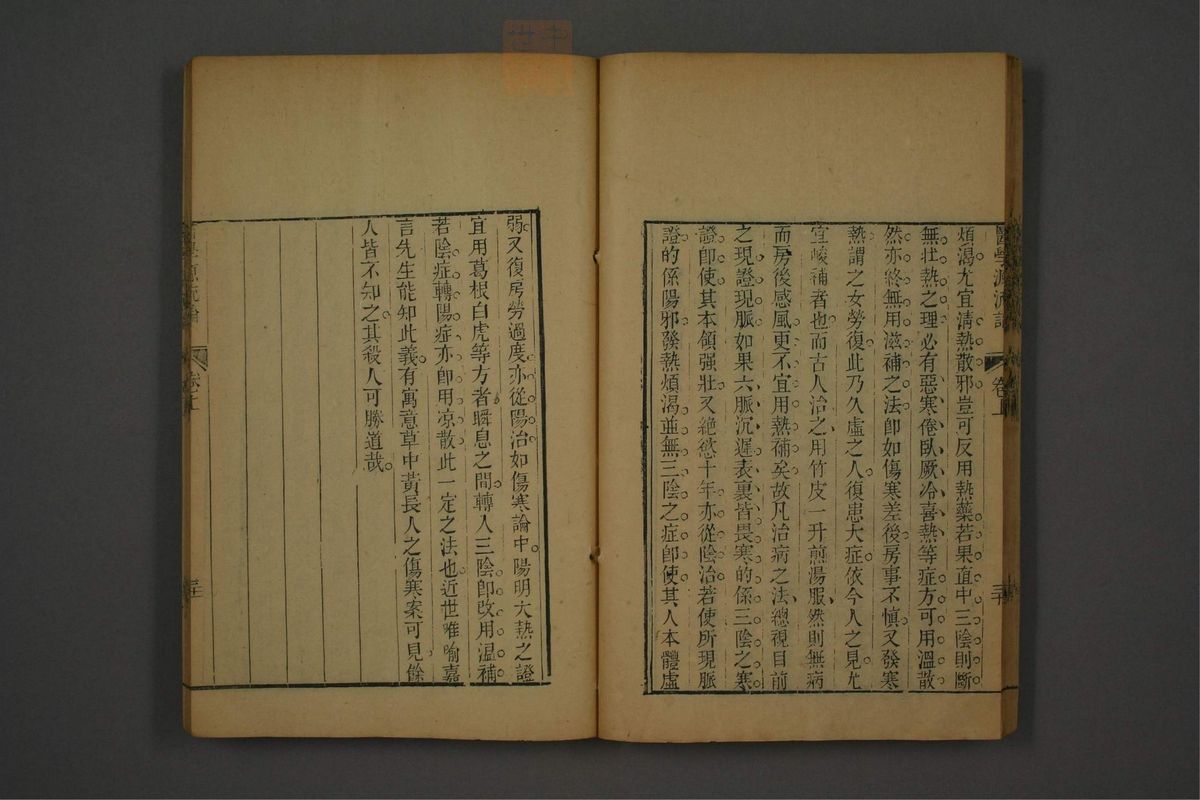 煩渴尤宜清熱散邪豈可反用熱藥若果直中三陰則斷
無壯熱之理必有惡寒倦臥厥冷喜熱等症方可用溫散
然亦終無用滋補之法卽如傷寒差後房事不慎又發寒
熱謂之女勞復此乃久虛之人復患大症依今人之見尤
宜峻補者也而古人治之用竹皮一升煎湯服然則無病
而房後感風更不宜用熱補矣故凡治病之法總視目前
之現證現脈如果六脈沉遲表裏皆畏寒的係三陰之寒
證卽使其本領强壯又絕慾十年亦從陰治若使所現脈
證的係陽邪發熱煩渴並無三陰之症卽使其人本體虛
弱又復房勞過度亦從陽治如傷寒論中陽明大熱之證
宜用葛根白虎等方者瞬息之間轉入三陰卽改用溫補
若陰症轉陽症亦卽用凉散此一定之法也近世唯喻嘉
言先生能知此義有寓意草中黃長人之傷寒案可見餘
人皆不知之其殺人可勝道哉
醫學源流論 卷上